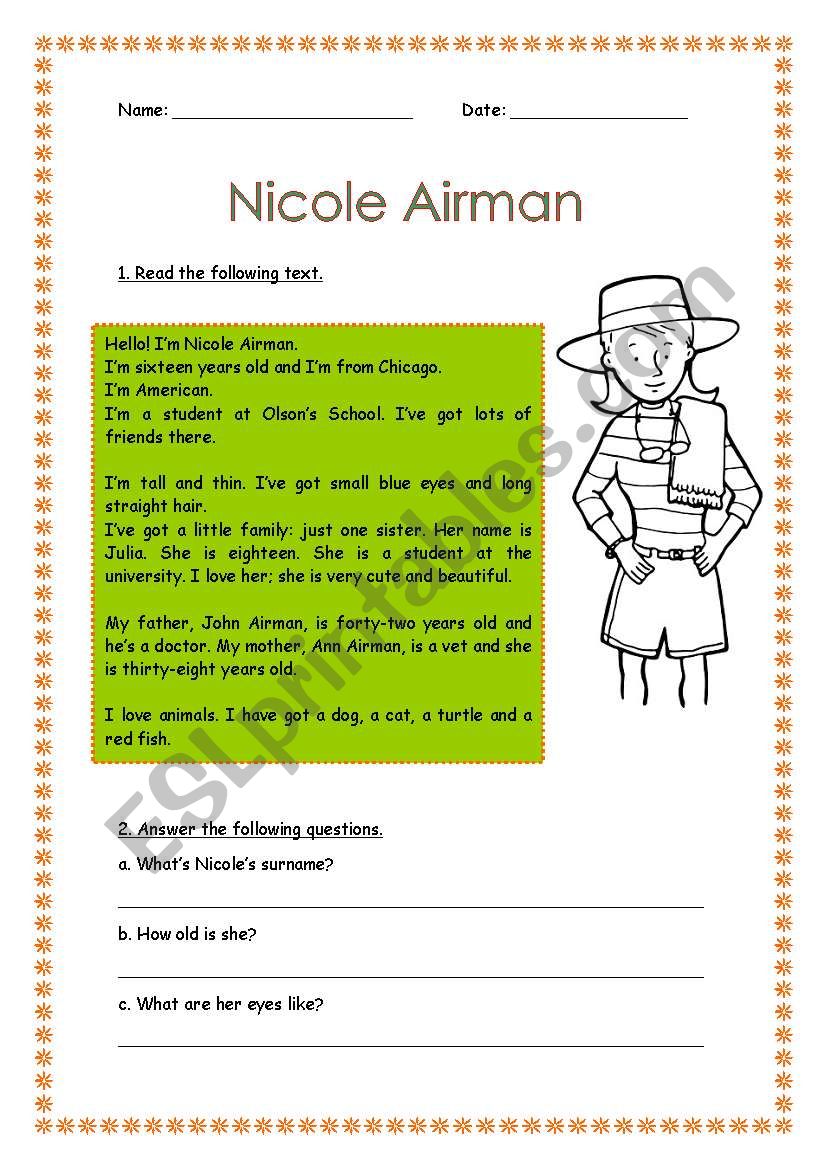 Name: ________________________ Date: __________________
Nicole Airman
1. Read the following text.
Hello! I'm Nicole Airman.
I'm sixteen years old and I'm from Chicago.
I'm American.
I'm a student at Olson's School. I've got lots of
friends there.
I'm tall and thin. I've got small blue eyes and long
straight hair.
I've got a little family: just one sister. Her name is
Julia. She is eighteen. She is a student at the
university. I love her; she is very cute and beautiful.
My father, John Airman, is forty-two years old and
he's a doctor. My mother, Ann Airman, is a vet and she
is thirty-eight years old.
I love animals. I have got a dog, a cat, a turtle and a
red fish.
2. Answer the following questions.
a. What's Nicole's surname?
b. How old is she?
c. What are her eyes like?
ESLprintables.com